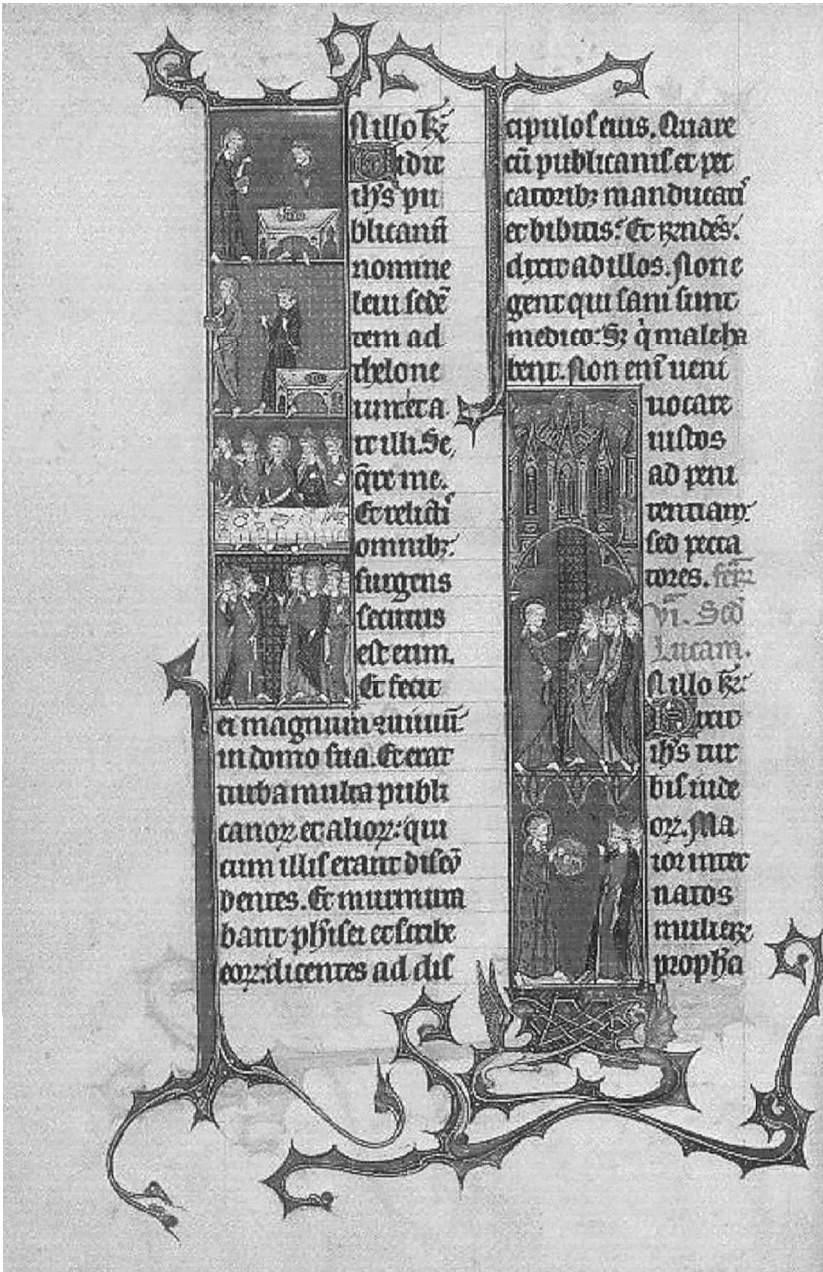 N illo tꝑe
Vidit
ih̄s pu
blicanū
nomine
leui sedē
tem ad
thelone
um et a
it illi. Se
q̄re me.
Et relictis
omnibꝫ
surgens
secutus
est eum.
Et fecit
ei magnum ꝯuiuiū
in domo sua. Et erat
turba multa publi
canoꝝ et alioꝝ: qui
cum illis erant discū
bentes. Et murmura
bant ph̓isei et scribe
eoꝝ: dicentes ad dis
cipulos eius. Quare
cū publicanis et pec
catoribꝫ manducatis
et bibitis? Et rn̄dēs:
dixit ad illos. Non e
gent qui sani sunt
medico: Sꝫ q̇ male ha
bent. Non eni ueni
uocare
iustos
ad peni
tentiam:
sed pecca
tores. fer̄
vi. Scd̄
Lucam.
N illo tꝑe:
Dixit
ih̄s tur
bis iude
oꝝ. Ma
ior inter
natos
mulieꝝ
proph̄a